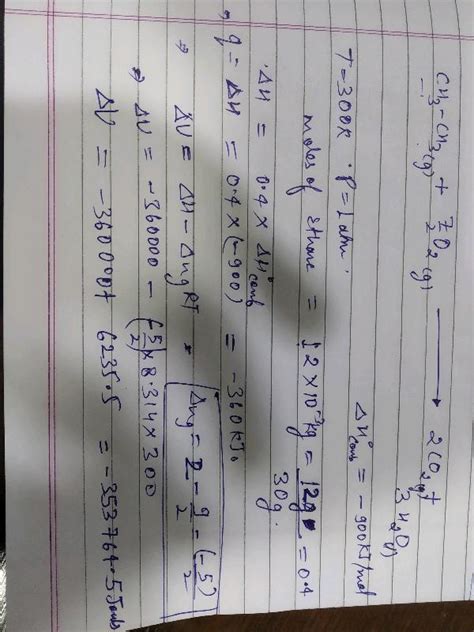 CH3-CH3(g) + 7/2 O2(g) → 2CO2(g) + 3H2O(l)
ΔH°comb = -900KJ/mol
T=300K · P=1atm.
moles of Ethane = 12×10⁻³kg = 12g/30g. = 0.4
ΔH = 0.4 × ΔH°comb
q = ΔH = 0.4 × (-900) = -360KJ.
→ ΔU = ΔH - ΔngRT
Δng = 2 - 9/2 = (-5/2)
→ ΔU = -360000 - (-5/2)×8.314×300
ΔU = -360000+ 6235.5 = -353764.5 Joules